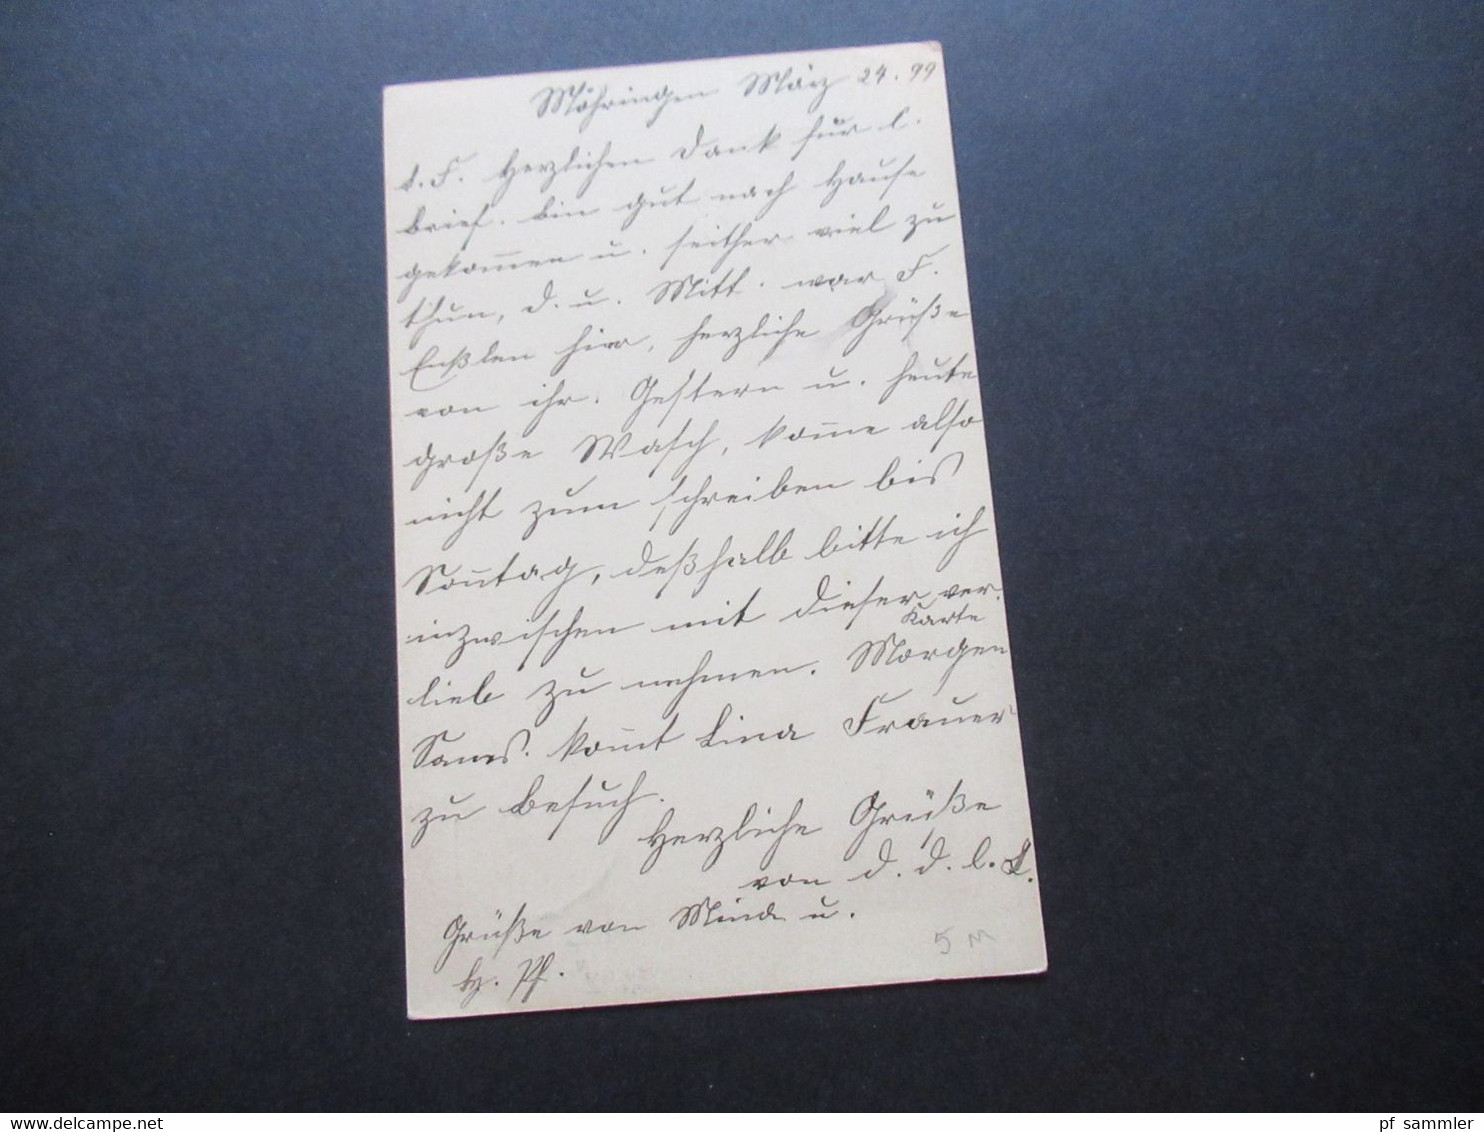 Möhringen März 24. 99
l. F. Herzlichen Dank für l.
brief. bin gut nach Hause
gekom̅en u. seither viel zu
thun, d. u. Mitt. war F.
Enßlen hier, herzliche Grüße
von ihr. Gestern u. heute
große Wasch, kom̅e also
nicht zum schreiben bis
Son̅tag, deßhalb bitte ich
inzwischen mit dieser ver.
Karte
lieb zu nehmen. Morgen
Sams. kom̅t Lina Frauer
zu Besuch.
Herzliche Grüße
von d. d. l. L.
Grüße von Minda u.
Hz. Pf.
5 M
pf_sammler
www.delcampe.net